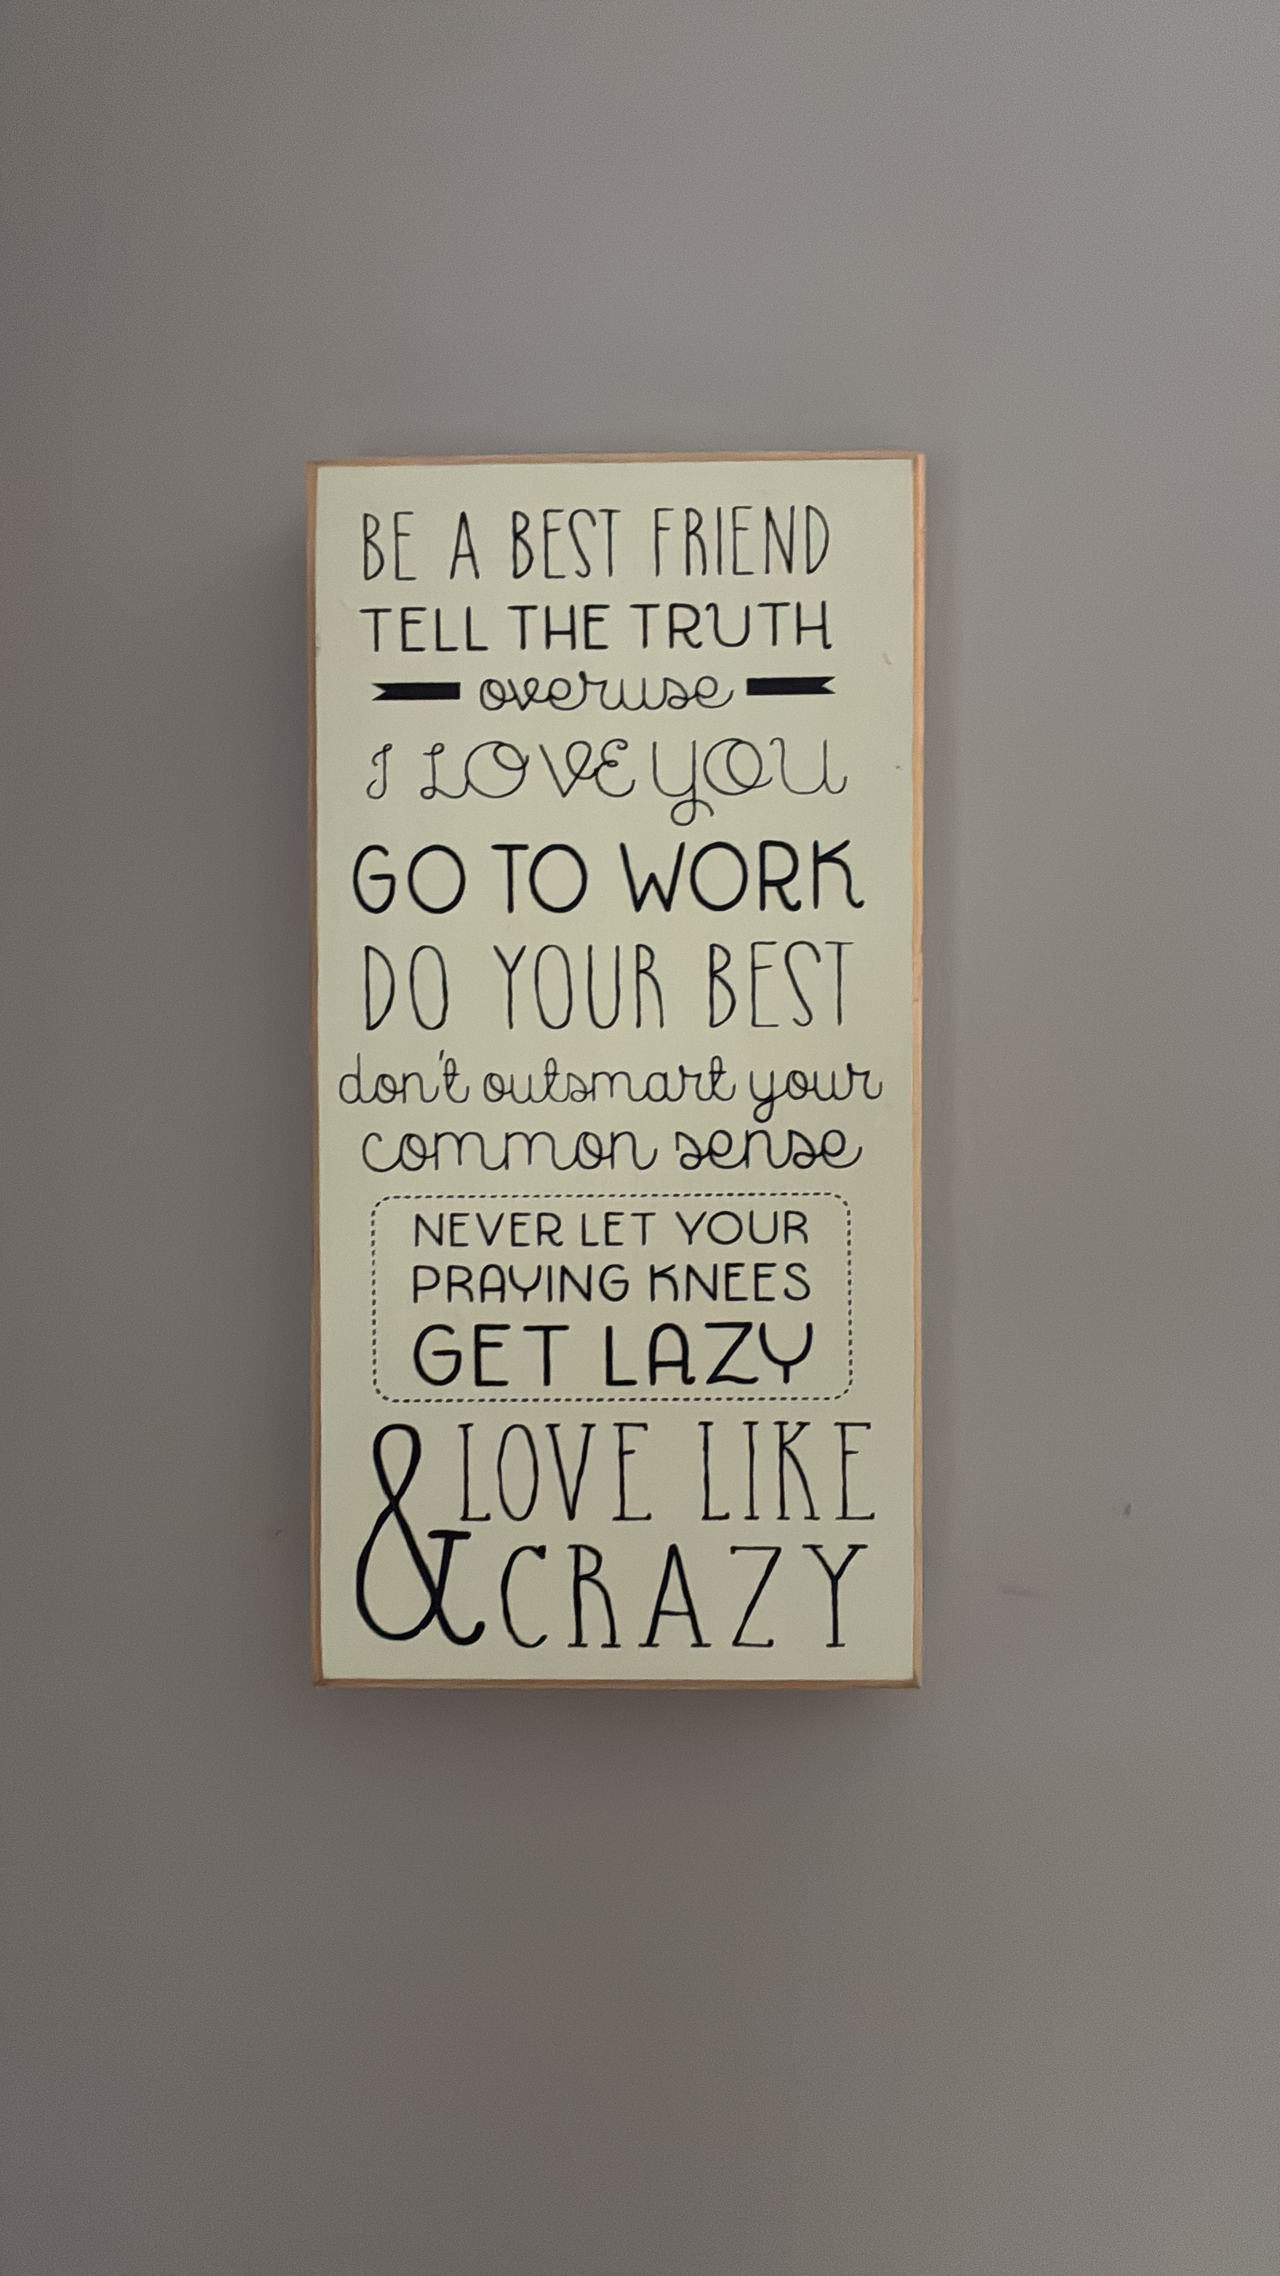 BE A BEST FRIEND
TELL THE TRUTH
overuse
I LOVE YOU
GO TO WORK
DO YOUR BEST
don't outsmart your
common sense
NEVER LET YOUR
PRAYING KNEES
GET LAZY
& LOVE LIKE
CRAZY